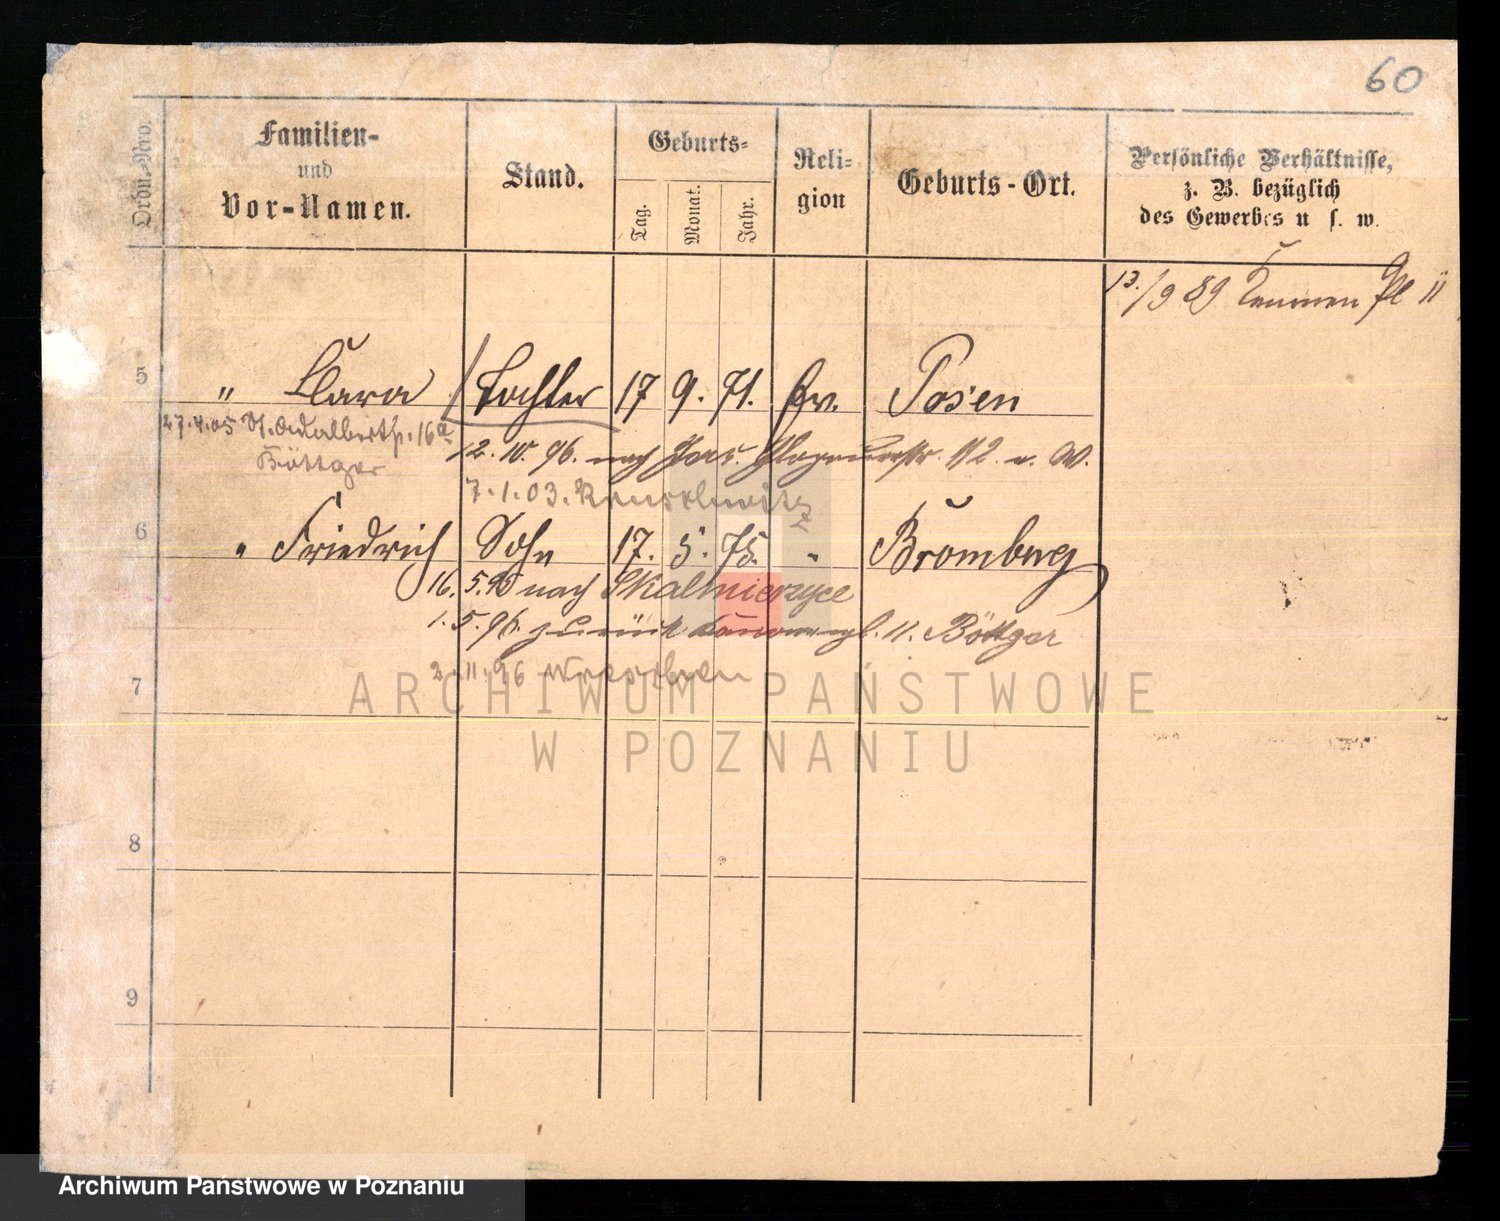 60
Ordn.-Nro.
Familien-
und
Vor-Namen.
Stand.
Geburts-
Tag.
Monat.
Jahr.
Reli-
gion
Geburts-Ort.
Persönliche Verhältnisse,
z. B. bezüglich
des Gewerbes u s. w.
13./9 89 Kanonen Pl 11
5 " Clara Tochter 17 9. 71. Ev. Posen
27.4.05 St. Adalbertstr. 16a
Böttger
12. 10. 96. nach Jers. Glogauerstr. 112 v. W.
7.1.03.
6 " Friedrich Sohn 17. 5. 75. " Bromberg
16. 5. 95 nach Skalmierzyce
1. 5. 96. zurück Kanonenpl. 11. Böttger
2.11.96 Wreschen
7
ARCHIWUM PAŃSTWOWE
W POZNANIU
8
9
Archiwum Państwowe w Poznaniu